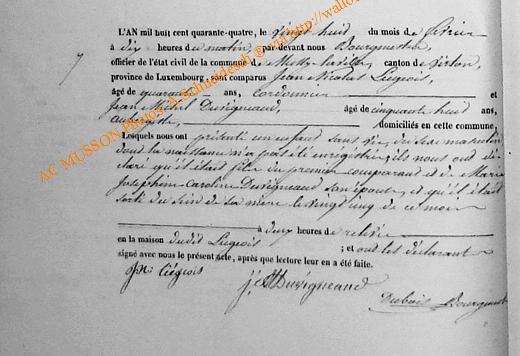 L'AN mil huit cent quarante-quatre, le vingt huit du mois de février
à dix heures du matin, par-devant nous Bourgmestre,
officier de l'état civil de la commune de Musson, canton de Virton,
province de Luxembourg, sont comparus Jean Nicolas Liégeois,
âgé de quarante ans, cordonnier et
Jean Michel Duvigneaud, âgé de cinquante huit ans,
aubergiste, domiciliés en cette commune,
Lesquels nous ont présenté un enfant sans vie, du sexe masculin
dont la naissance n'a pas été enregistrée; ils nous ont dé-
claré qu'il était fils du premier comparant et de Marie
Joséphine Caroline Duvigneaud son épouse, et qu'il était
sorti du sein de sa mère le vingt sept de ce mois
à deux heures de relevée
en la maison dudit Liégeois ; et ont les déclarants
signé avec nous le présent acte, après que lecture leur en a été faite.
J.N. Liégeois
J. M. Duvigneaud
Dubois Bourgmestre
AC MUSSON Photos A Schneidesch © http://wallo